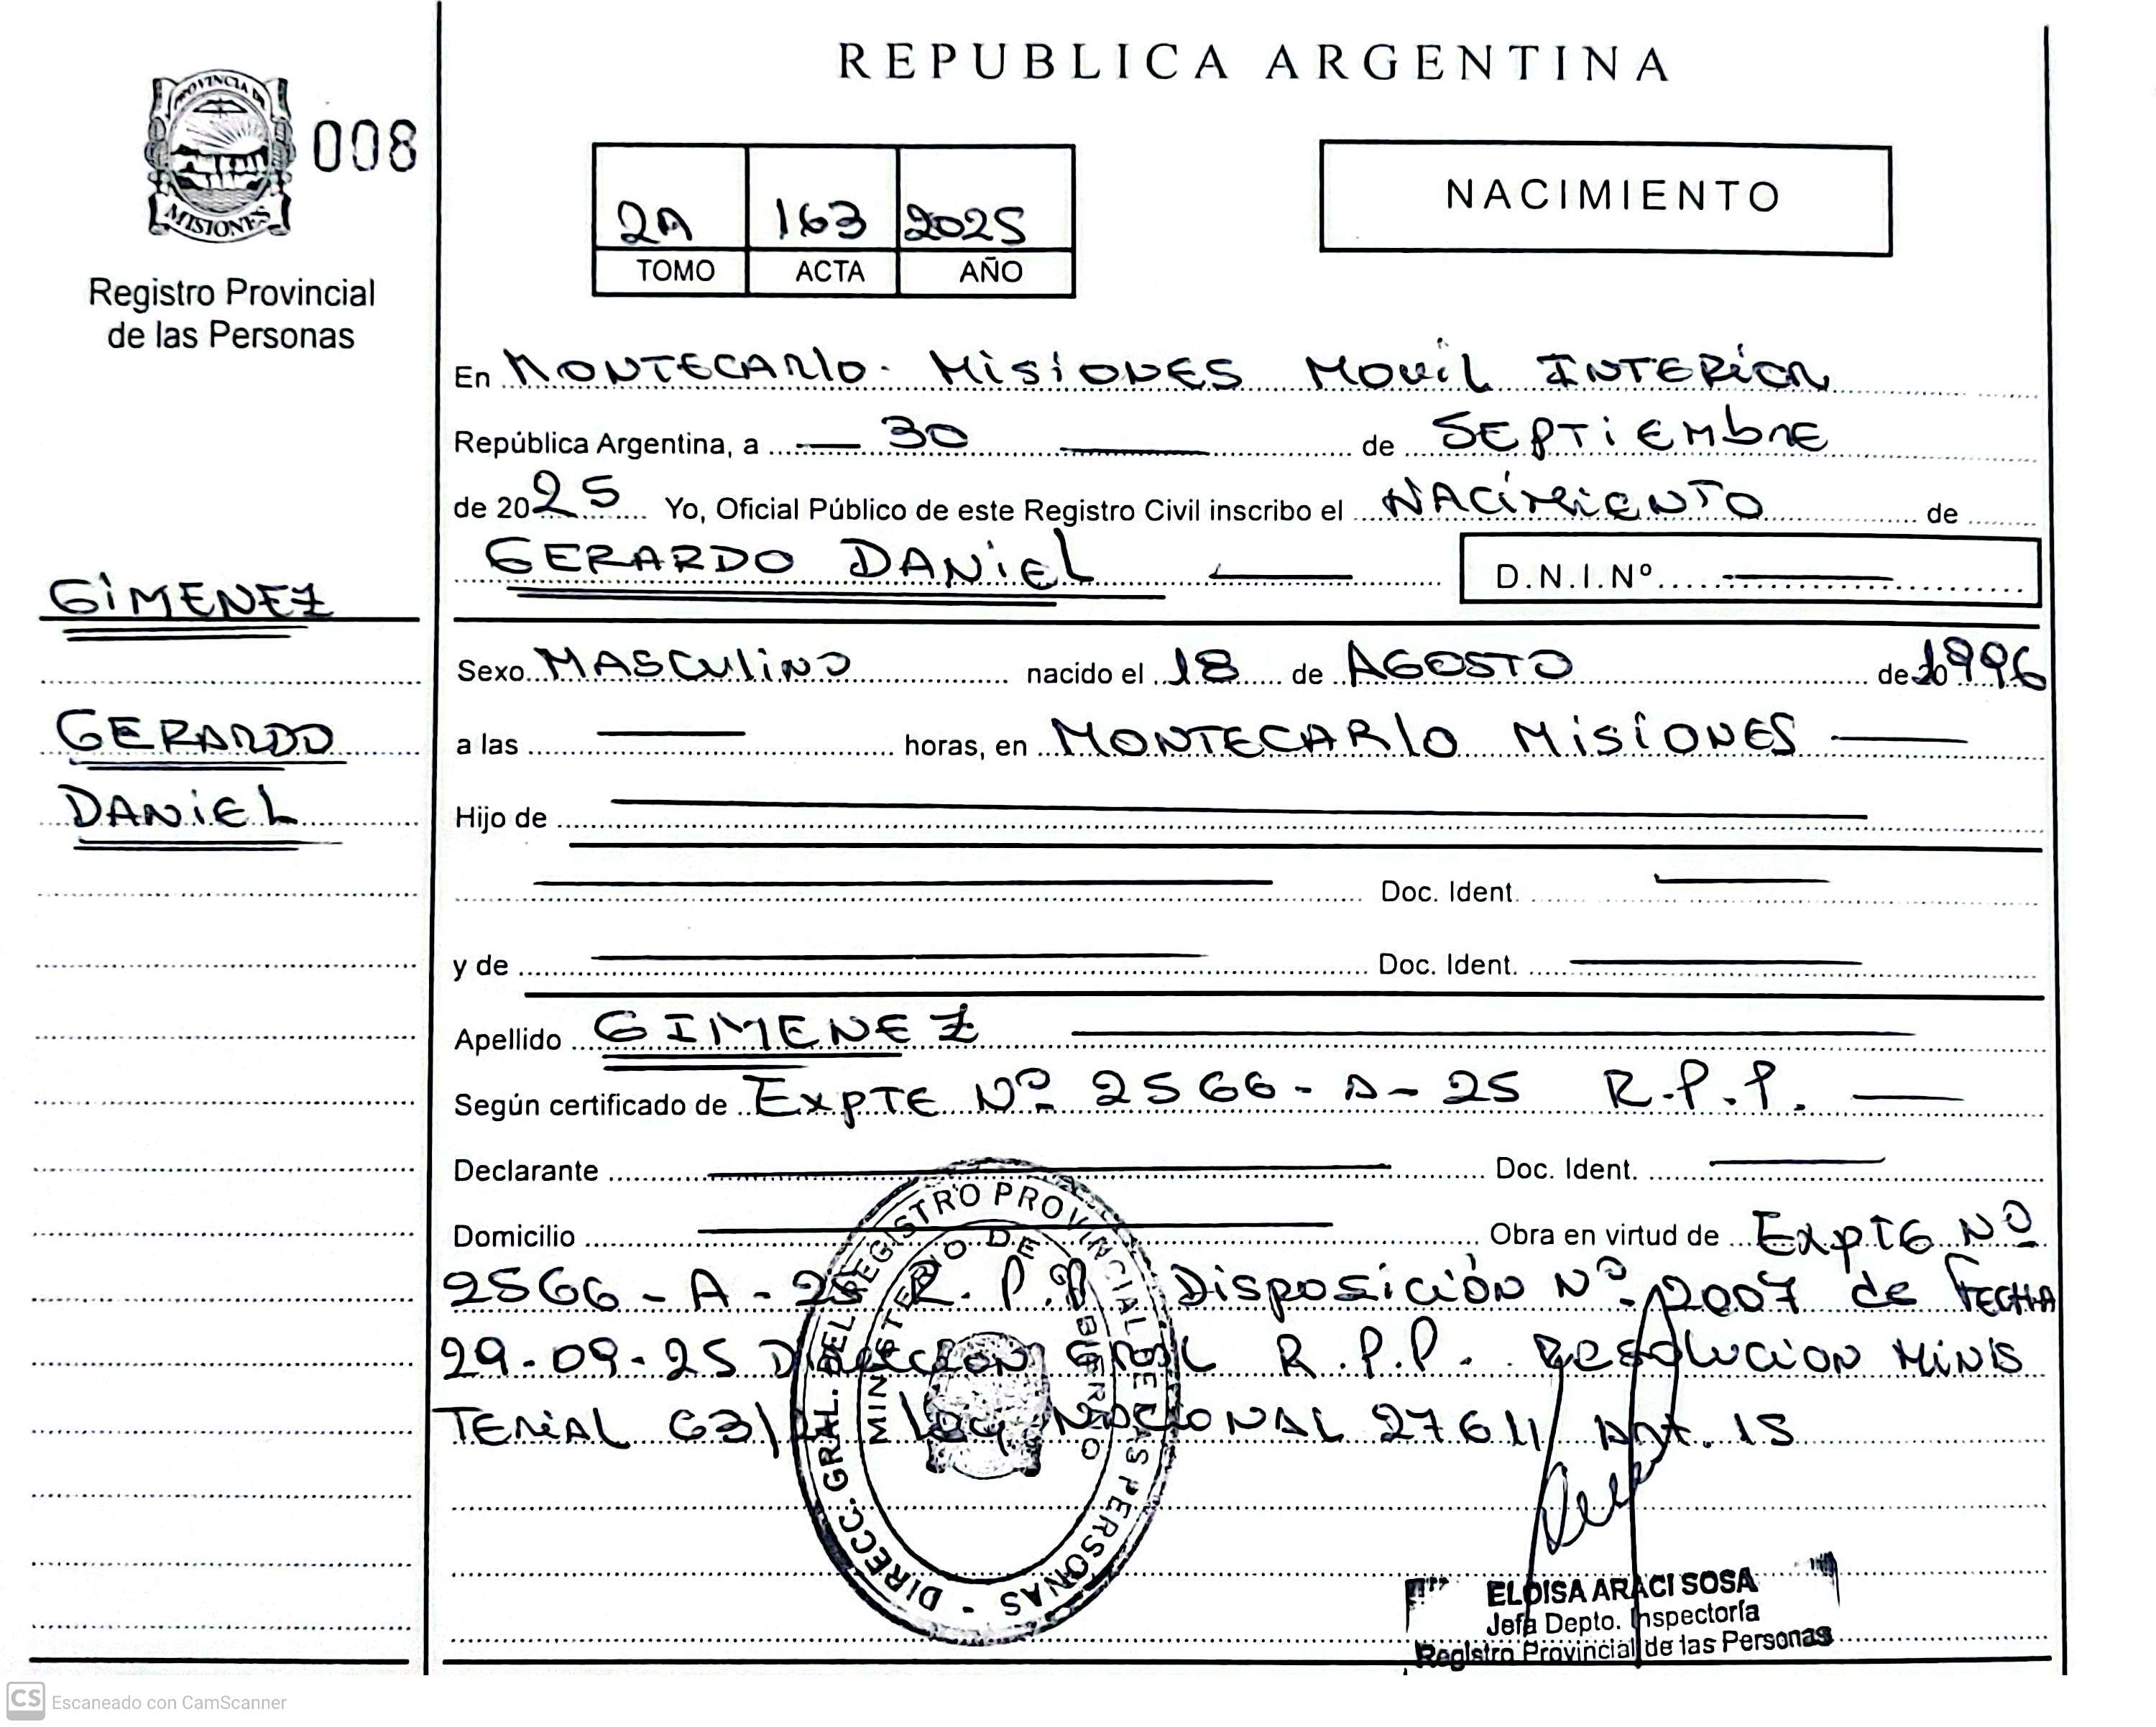 REPUBLICA ARGENTINA
PROVINCIA DE
MISIONES
008
Registro Provincial
de las Personas
2A 163 2025
TOMO ACTA AÑO
NACIMIENTO
En MONTECARlo. MisiONES MOViL INTERiOR
República Argentina, a 30 de SEPTiEMbRE
de 2025 Yo, Oficial Público de este Registro Civil inscribo el NACiMiENTO de
GERARDO DANiEL D.N.I.Nº
GiMENEZ
GERARDO
DANiEL
Sexo MASCuliNO nacido el 18 de AGOSTO de 1996
a las horas, en MONTECARlO MisiONES
Hijo de
Doc. Ident.
y de Doc. Ident.
Apellido GIMENEZ
Según certificado de ExpTE Nº 2566-A-25 R.P.P.
Declarante Doc. Ident.
Domicilio Obra en virtud de ExpTE Nº
2566-A-25 R.P.P. Disposición Nº 2007 de FECHA
29-09-25 Dirección GRAL R.P.P. Resolucion MiNiS
TERiAL 63/ Ley NACIONAL 27611 Art. 15
DIRECC. GRAL. DEL REGISTRO PROVINCIAL DE LAS PERSONAS -
MINISTERIO DE GOBIERNO
ELOISA ARACI SOSA
Jefa Depto. Inspectoría
Registro Provincial de las Personas
CS Escaneado con CamScanner